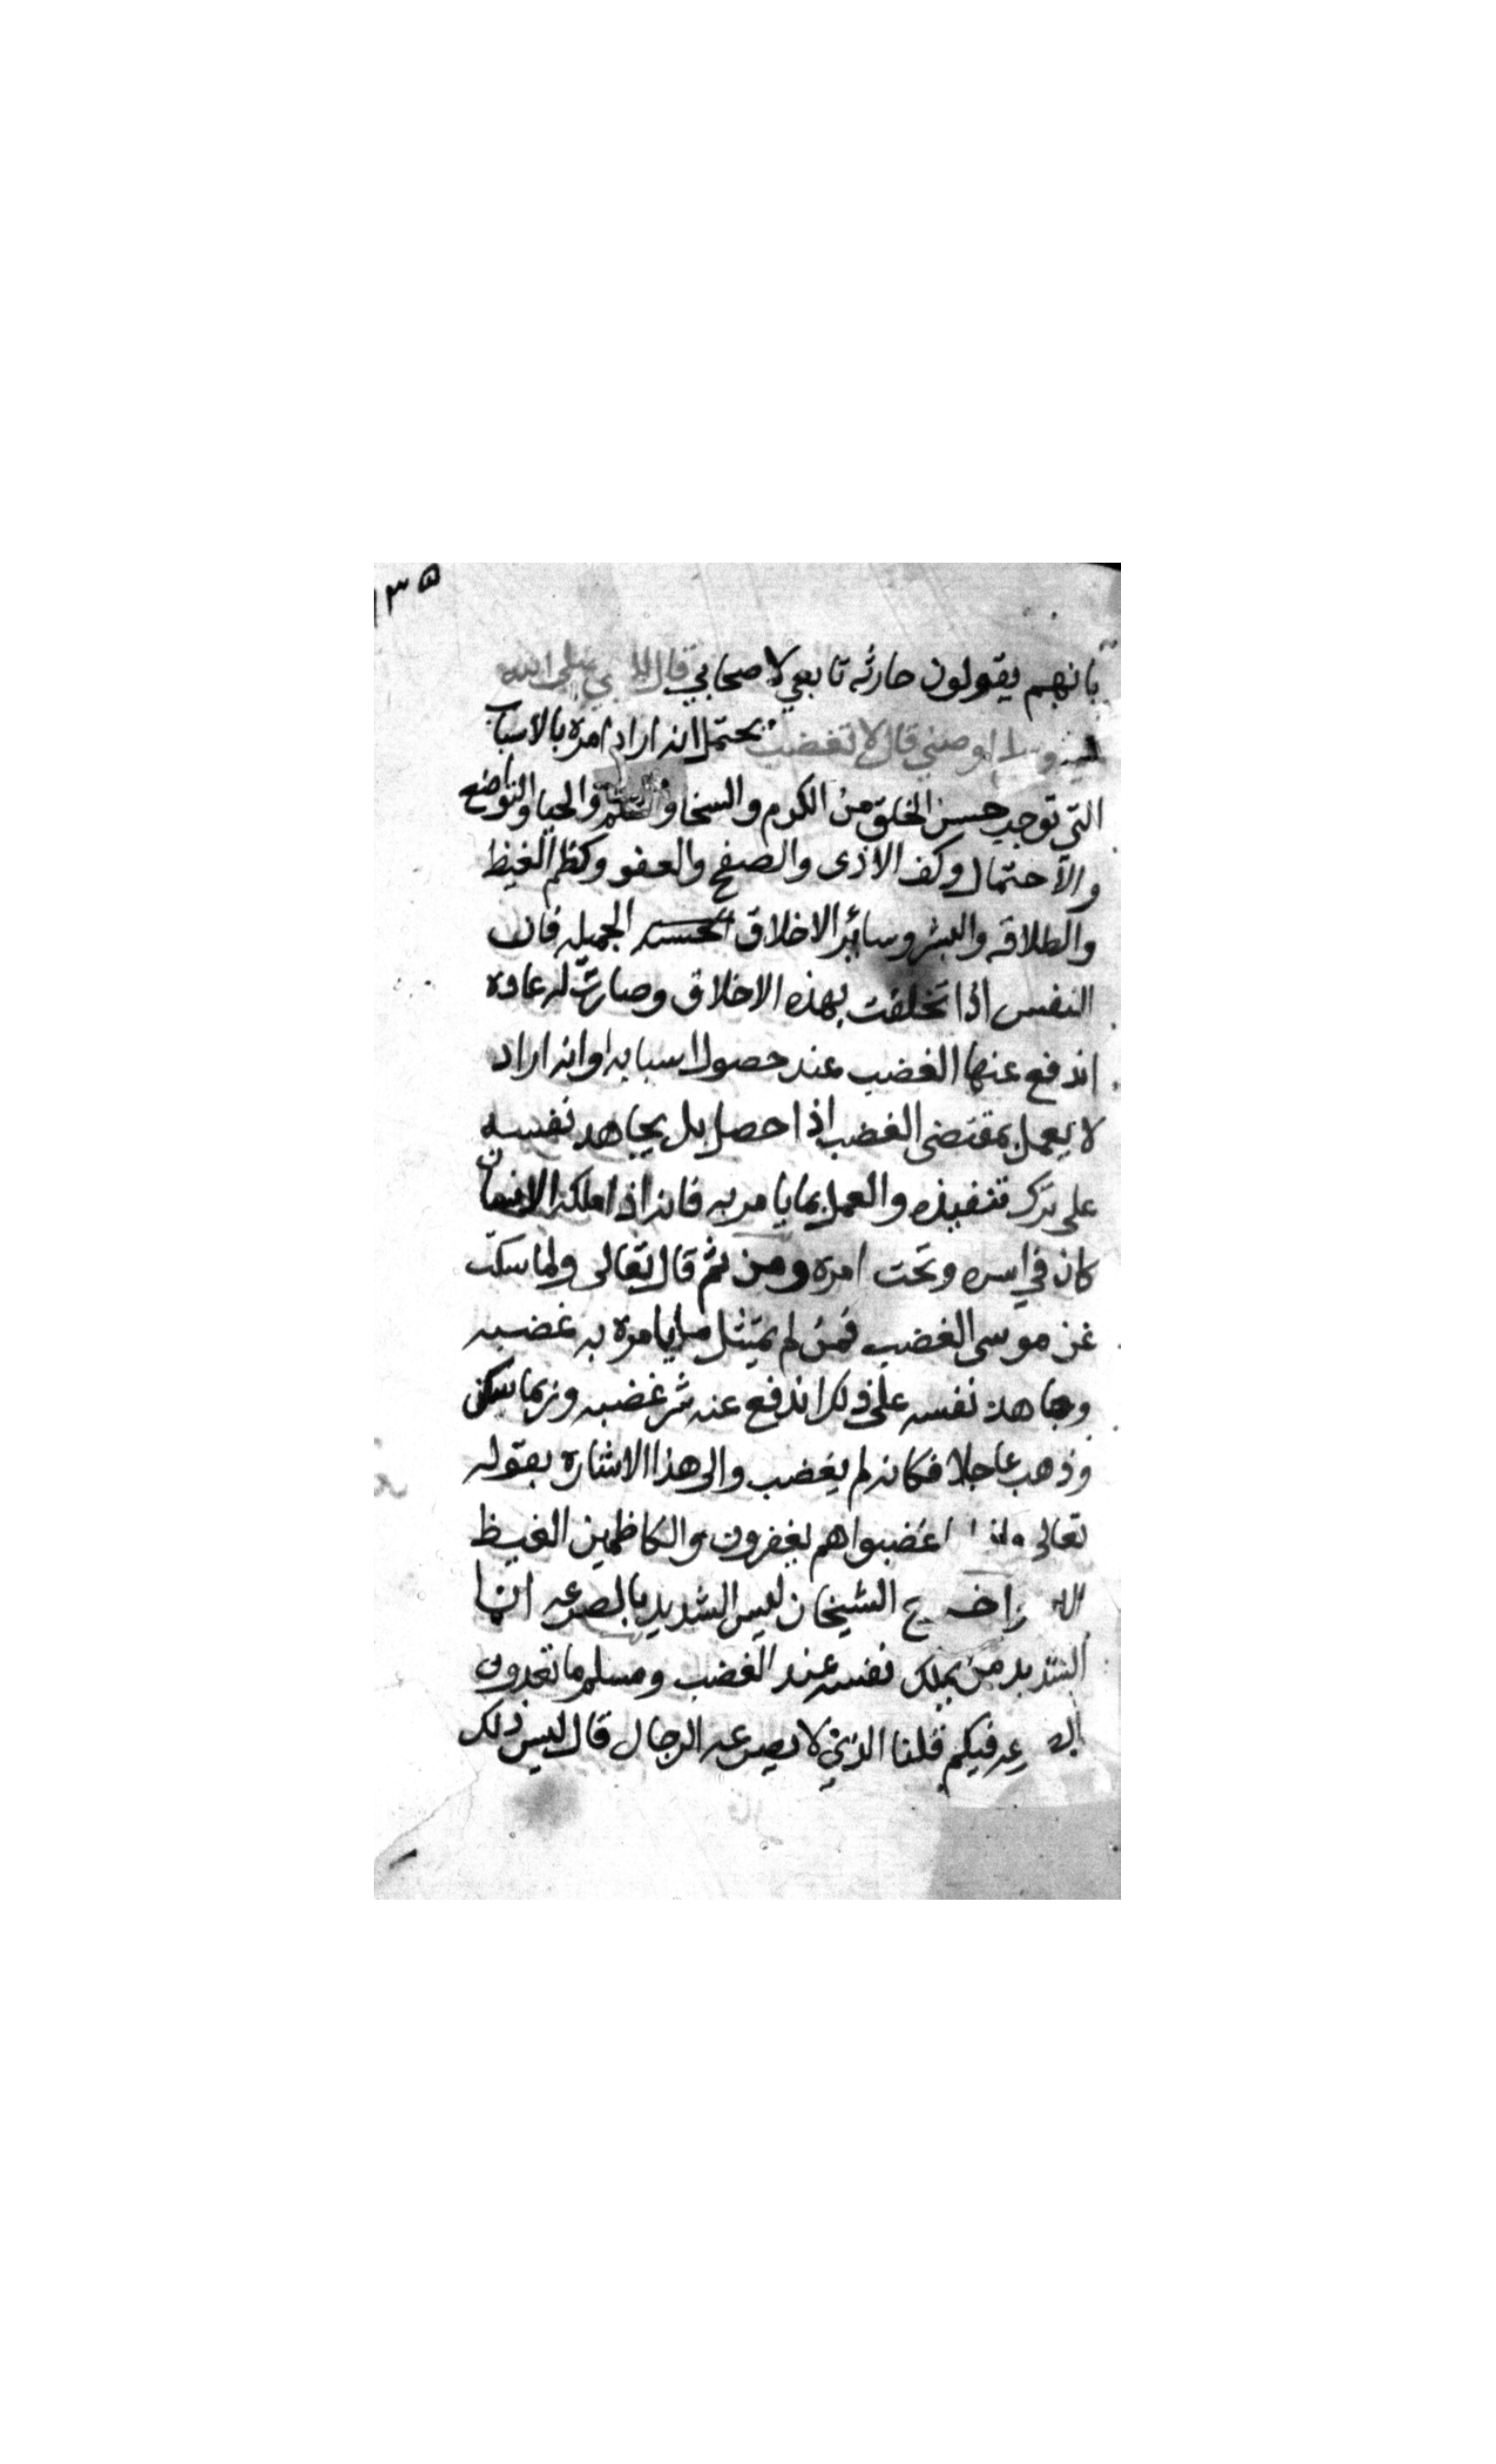 ١٣٥
بانهم يقولون حارثه تابعي لا صحابي قال للنبي صلى الله
عليه وسلم اوصني قال لا تغضب يحتمل انه اراد امره بالاسباب
التي توجب حسن الخلق من الكرم والسخا والحلم والحيا والتواضع
والاحتمال وكف الاذى والصفح والعفو وكظم الغيظ
والطلاقه والبشر وسائر الاخلاق الجميله فان
النفس اذا تخلقت بهذه الاخلاق وصارت له عادة
اندفع عنها الغضب عند حصول اسبابه او انه اراد
لا يعمل بمقتضى الغضب اذا حصل بل يجاهد نفسه
على ترك تنفيذه والعمل بما يامر به فانه اذا ملك الانسان
كان في اسره وتحت امره ومن ثم قال تعالى ولما سكت
عن موسى الغضب فمن لم يمتثل ما يامره به غضبه
وجاهد نفسه على ذلك اندفع عنه شر غضبه وربما سكن
وذهب عاجلا فكانه لم يغضب والى هذا الاشارة بقوله
تعالى واذا ما غضبوا هم يغفرون والكاظمين الغيظ
واخرج الشيخان ليس الشديد بالصرعه انما
الشديد من يملك نفسه عند الغضب ومسلم ما تعدون
الصرعه فيكم قلنا الذي لا يصرعه الرجال قال ليس ذلك